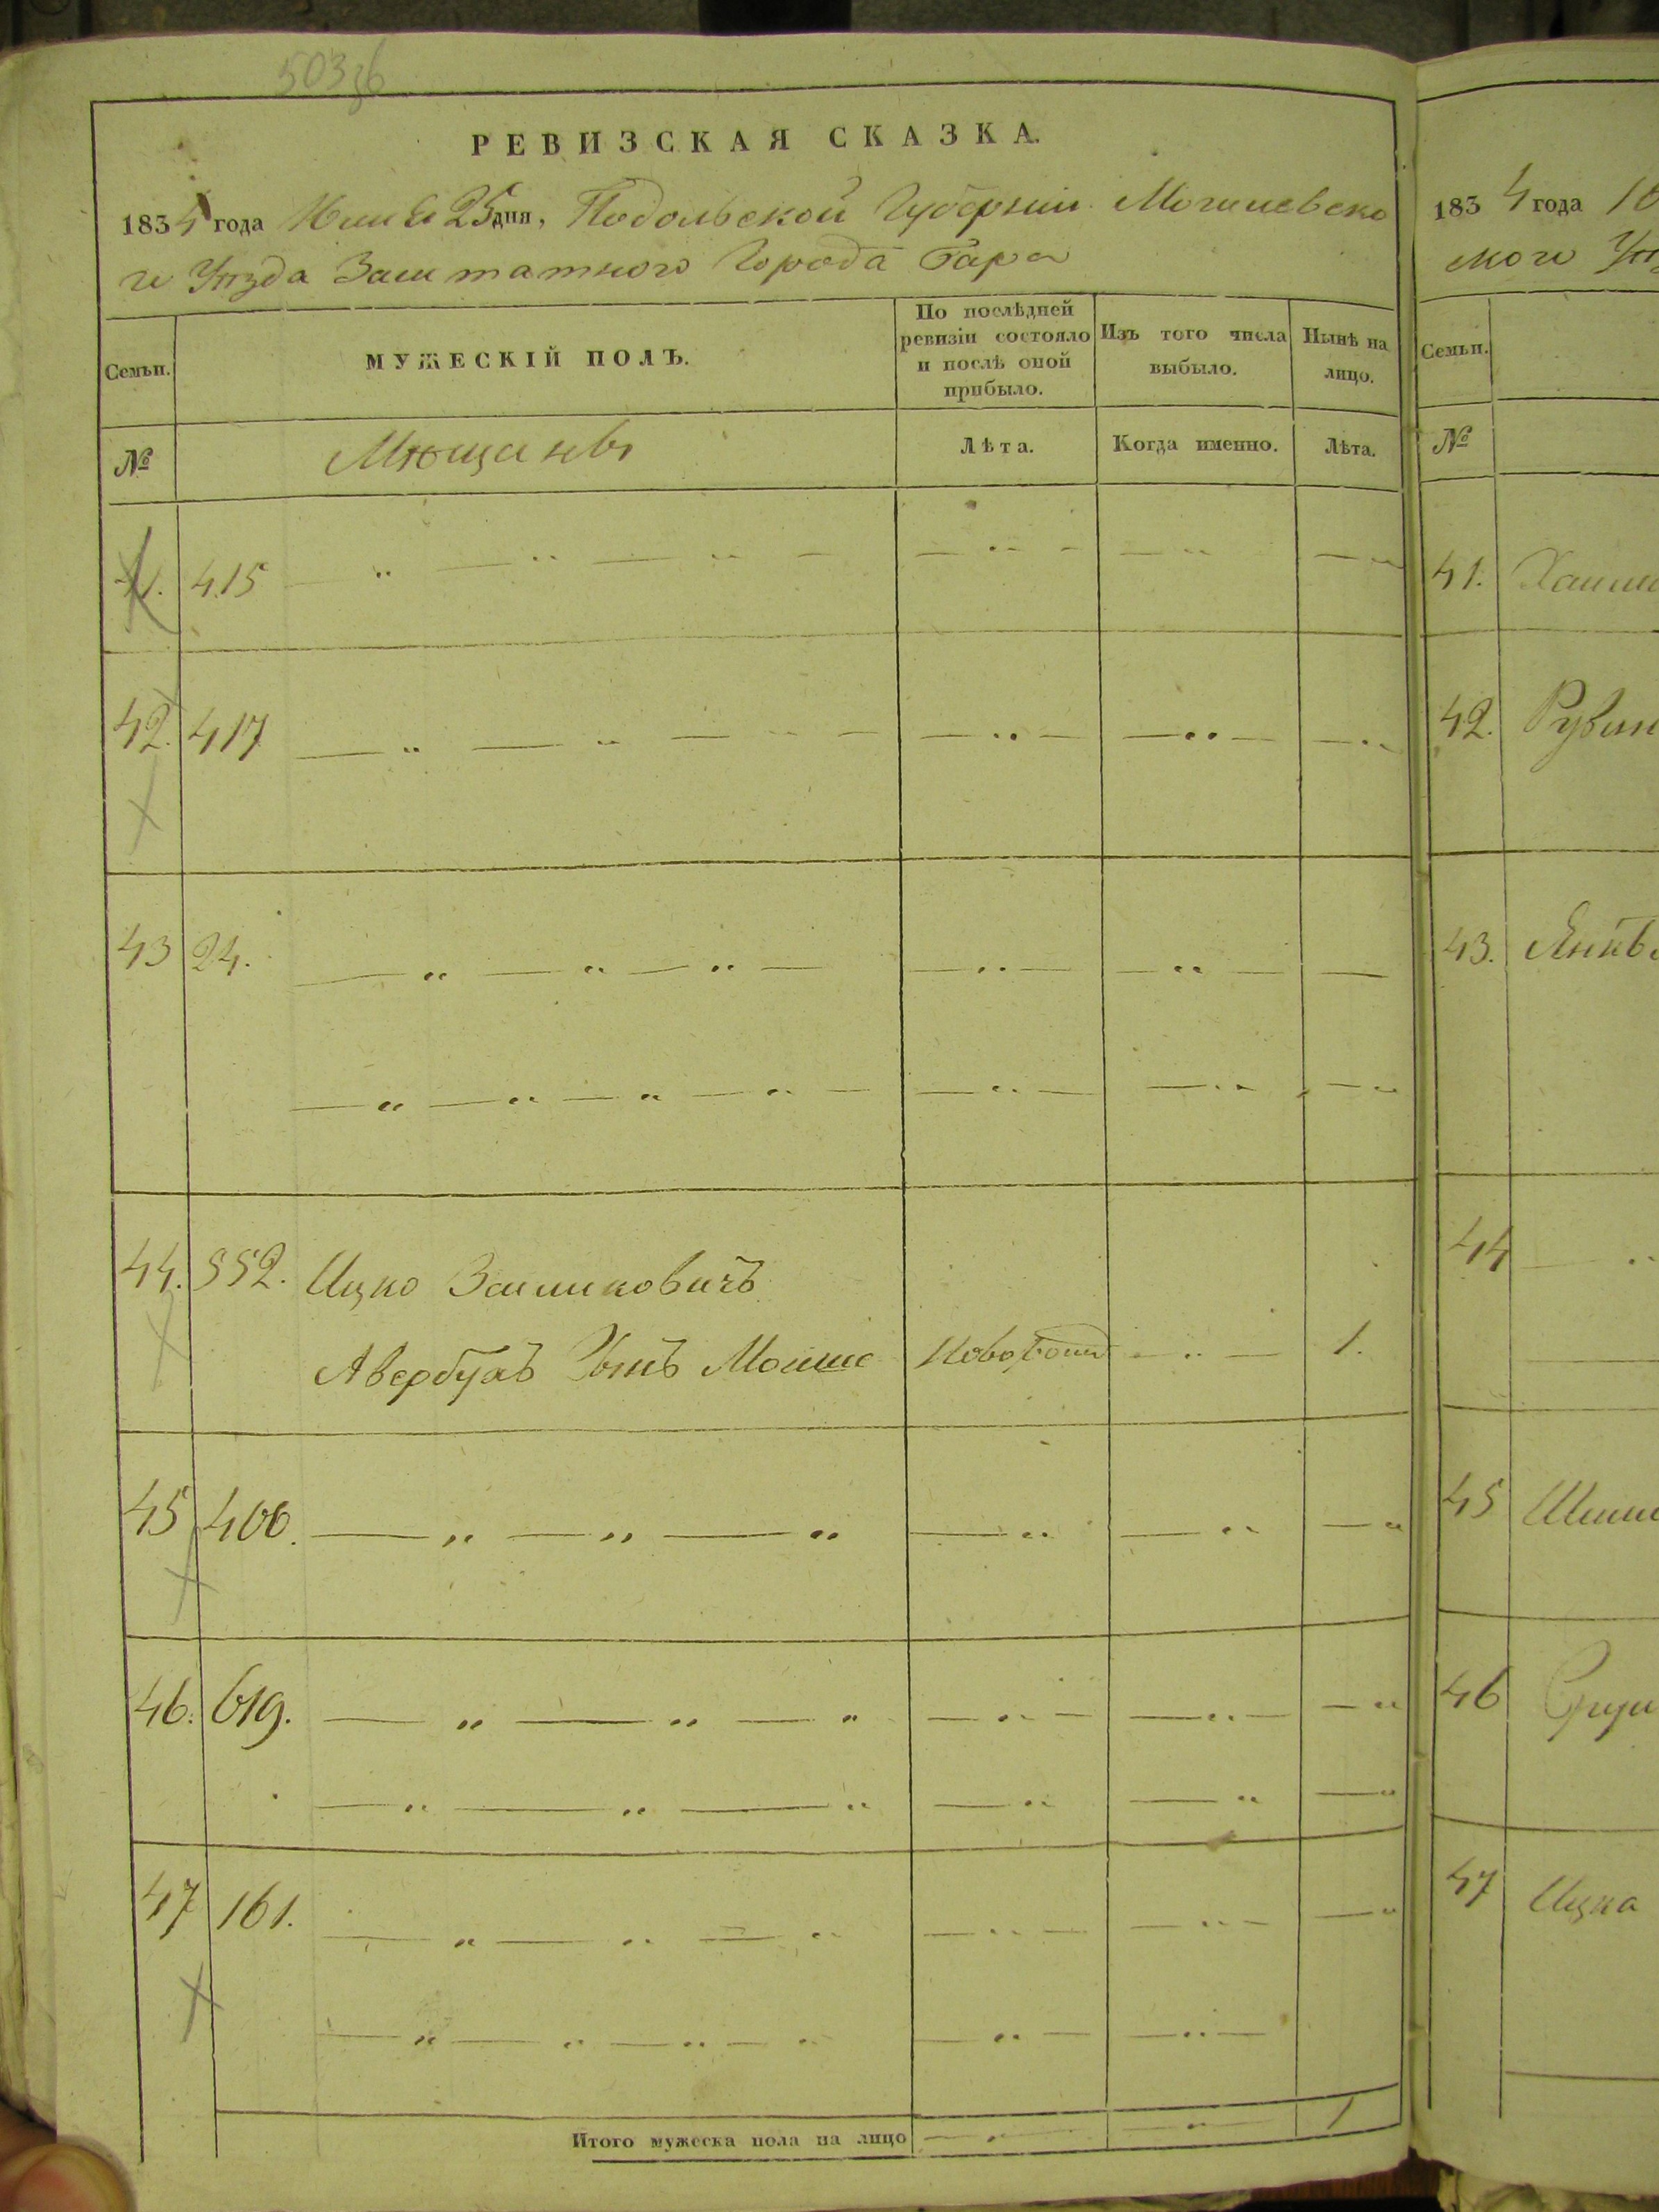 РЕВИЗСКАЯ СКАЗКА.
1834 года Июня 25 дня, Подольской Губерніи Могилевска
го Уѣзда Заштатного Города Бара
Семьи.
МУЖЕСКІЙ ПОЛЪ.
По послѣдней ревизіи состояло и послѣ оной прибыло.
Изъ того числа выбыло.
Нынѣ на лицо.
№
Мѣщанъ
Лѣта.
Когда именно.
Лѣта.
41. 415
42. 417
43 24.
44. 552. Ицко Займиковичъ
Авербухъ Сынъ Мошко Новорожд 1.
45 400.
46. 619.
47 161.
Итого мужеска пола на лицо 1
1834 года
мого
Семьи.
№
41.
42. Рувин
43.
44
45
46
47 Ицка